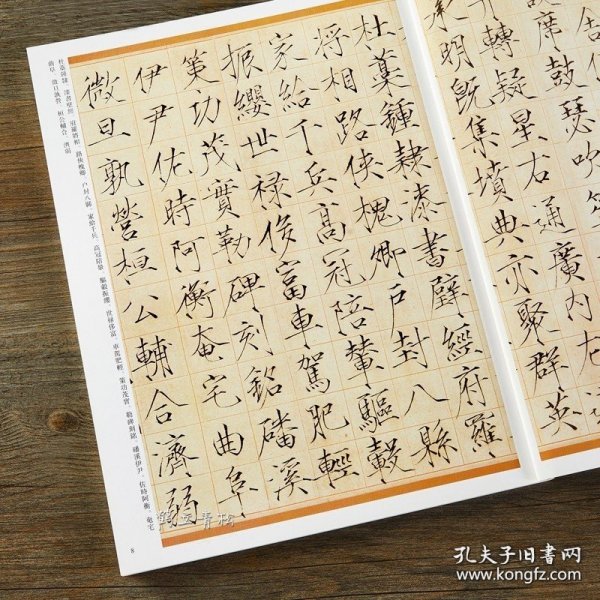 席鼓瑟吹笙
轉疑星右通廣内左
承明既集墳典亦聚群英
杜稾鍾隸漆書壁經府羅
將相路俠槐卿戶封八縣
家給千兵高冠陪輦驅轂
振纓世祿侈富車駕肥輕
策功茂實勒碑刻銘磻溪
伊尹佐時阿衡奄宅曲阜
微旦孰營桓公輔合濟弱
杜稾鍾隸 漆書壁經 府羅將相 路俠槐卿 户封八縣 家給千兵 高冠陪輦 驅轂振纓 世禄侈富 車駕肥輕 策功茂實 勒碑刻銘 磻溪伊尹 佐時阿衡 奄宅
曲阜 微旦孰營 桓公輔合 濟弱
8
孔夫子旧书网
www.kongfz.com